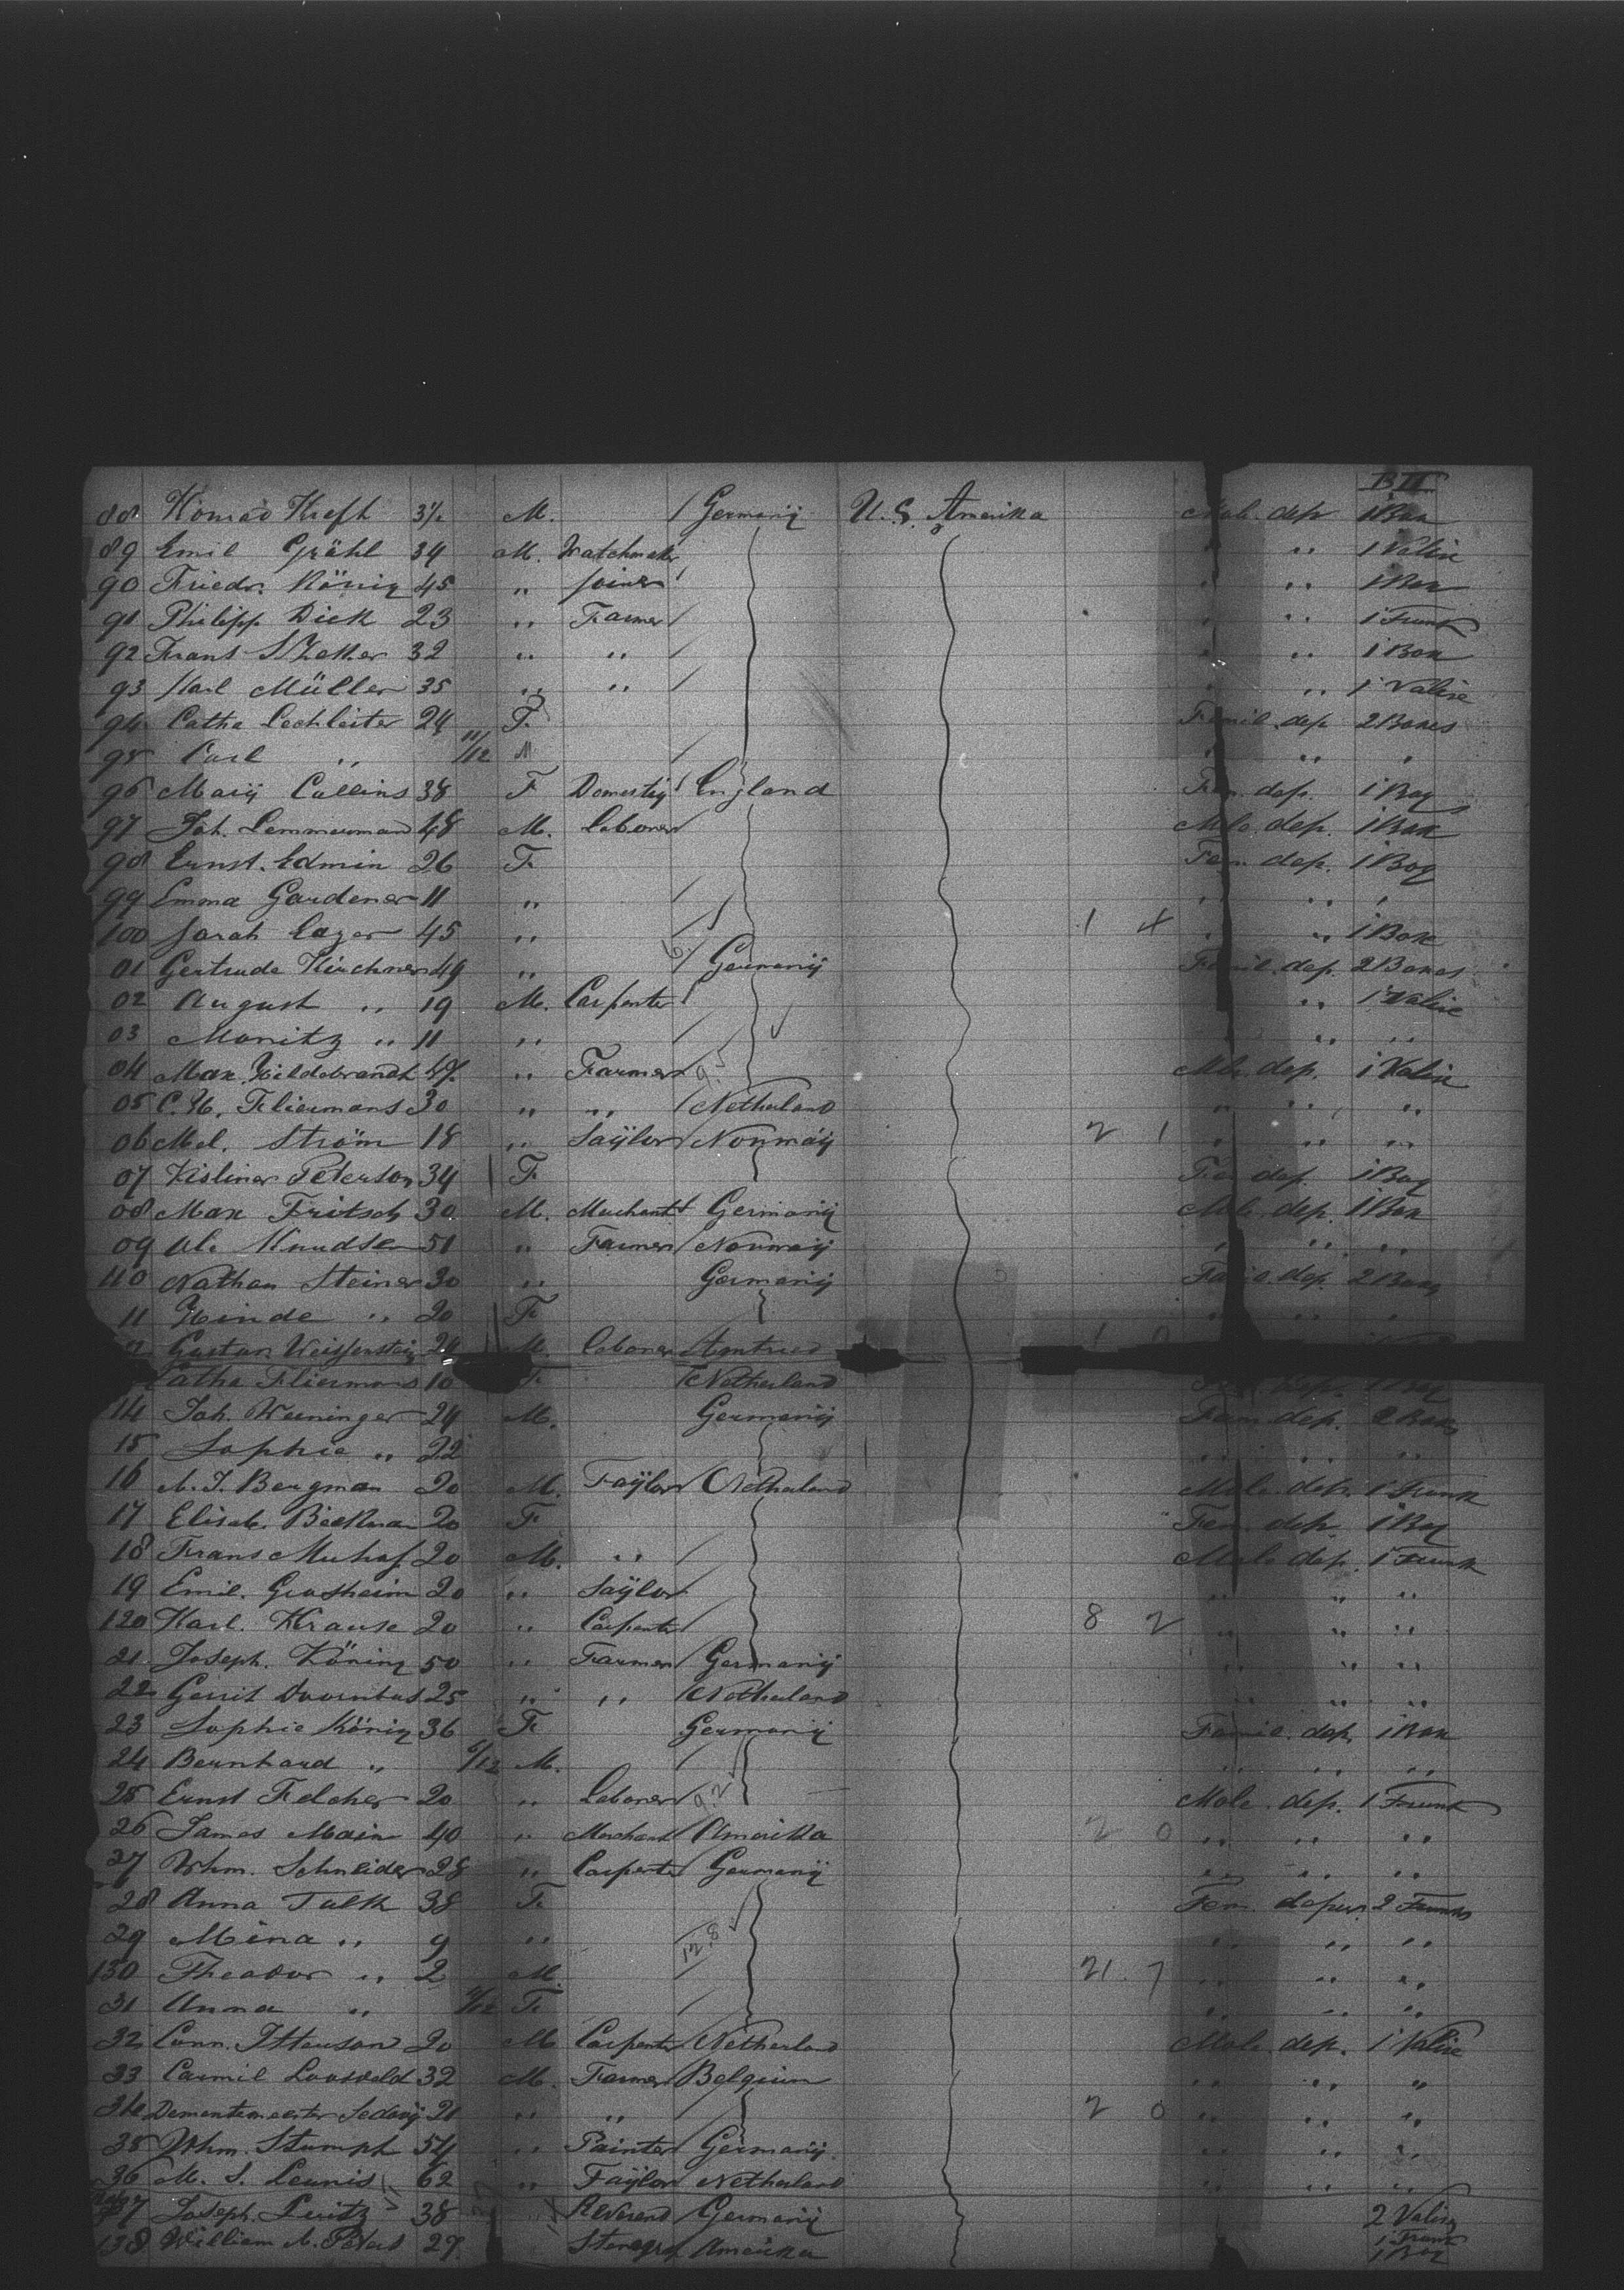 BII
88 Konrad Kreft M. / Germanij U.S. Amerika Male dep 1 Box
89 Emil Grähl 34 M. Watchmaker " " 1 Valise
90 Friedr. König 45 " Joiner / " " 1 Box
91 Philipp Dick 23 " Farmer / " " 1 Trunk
92 Frans 32 " " / " " 1 Box
93 Karl Müller 35 " " / " " 1 Valise
94 Catha Lechleiter 24 F. Famil. dep 2 Boxes
95 Carl " 11/12 M / " " "
96 Marij Collins 38 F Domestiq / England Fem. dep. 1 Bag
97 Joh. Lemmerman 48 M. Laborer / Mle. dep. 1 Box
98 Ernst. Edmin 26 F Fem. dep. 1 Bag
99 Emma Gardener 11 " / " " "
100 Sarah Eager 45 " / 1 4 " " 1 Box
01 Gertrude Kirchner 49 " / Germanij Famil. dep. 2 Boxes
02 August " 19 M. Carpenter / " 1 Valise
03 Moritz " 11 " / " "
04 Max Hildebrandt " Farmer 9.5 Mle. dep. 1 Valise
05 C. H. Fliermans 30 " " / Netherland " " "
06 Mel. Ström 18 " Saÿlor / Norwaÿ 2 1 " " "
07 Kisliner Peterson 34 F Fem dep. 1 Bag
08 Max Fritsch 30 M. Merchant Germanij Mle. dep. 1 Box
09 Ole Knudsen 51 " Farmer / Norwaij " " "
110 Nathan Steiner 30 " Germanij Famil. dep. 2 Boxes
11 Hinde " 20 F " " "
Gustav Weissenstein 24 M. Laborer
Catha Fliermans 10 F / Netherland
14 Joh. Werninger 24 M. Germanij Fam. dep. 2 Boxes
15 Sophie " 22 " " "
16 A. J. Bergman 20 M. Taÿlor / Netherland Male dep. 1 Trunk
17 Elisab. Biekman 20 F Fem. dep. 1 Bag
18 Frans 20 M. " / Male dep. 1 Trunk
19 Emil. Grosheim 20 " Saÿlor " " "
120 Karl. Krause 20 " Carpenter / 8 2 " " "
21 Joseph. Köning 50 " Farmer / Germanij " " "
22 Gerrit 25 " " / Netherland " " "
23 Sophie König 36 F. Germanij Famil. dep. 1 Box
24 Bernhard " 6/12 M. / " " "
25 Ernst Felcher 20 " Laborer / 9.2 Male. dep. 1 Trunk
26 James Main 40 " Merchant / Amerika 2 0 " " "
27 Whm. Schneider 28 " Carpenter / Germanij " " "
28 Anna Talk 38 F. Fem. 2 Trunks
29 Mina " 9 " 12.8 " " "
130 Theodor " 2 M. / 21. 7 " " "
31 Anna " F. / " " "
32 Conn. 20 M. Carpenter / Netherland Male dep. 1 Valise
33 Carmil Loosveld 32 M. Farmer / Belgium " " "
34 21 " " / 2 0 " " "
35 Whm. Stumph 54 " Painter / Germanij " " "
36 M. S. Leunis 62 " Taÿlor Netherland " " "
37 Joseph 38 Reverend Germanij 2 Valise
138 William A. Peters 29 Amerika 1 Trunk
1 Bag